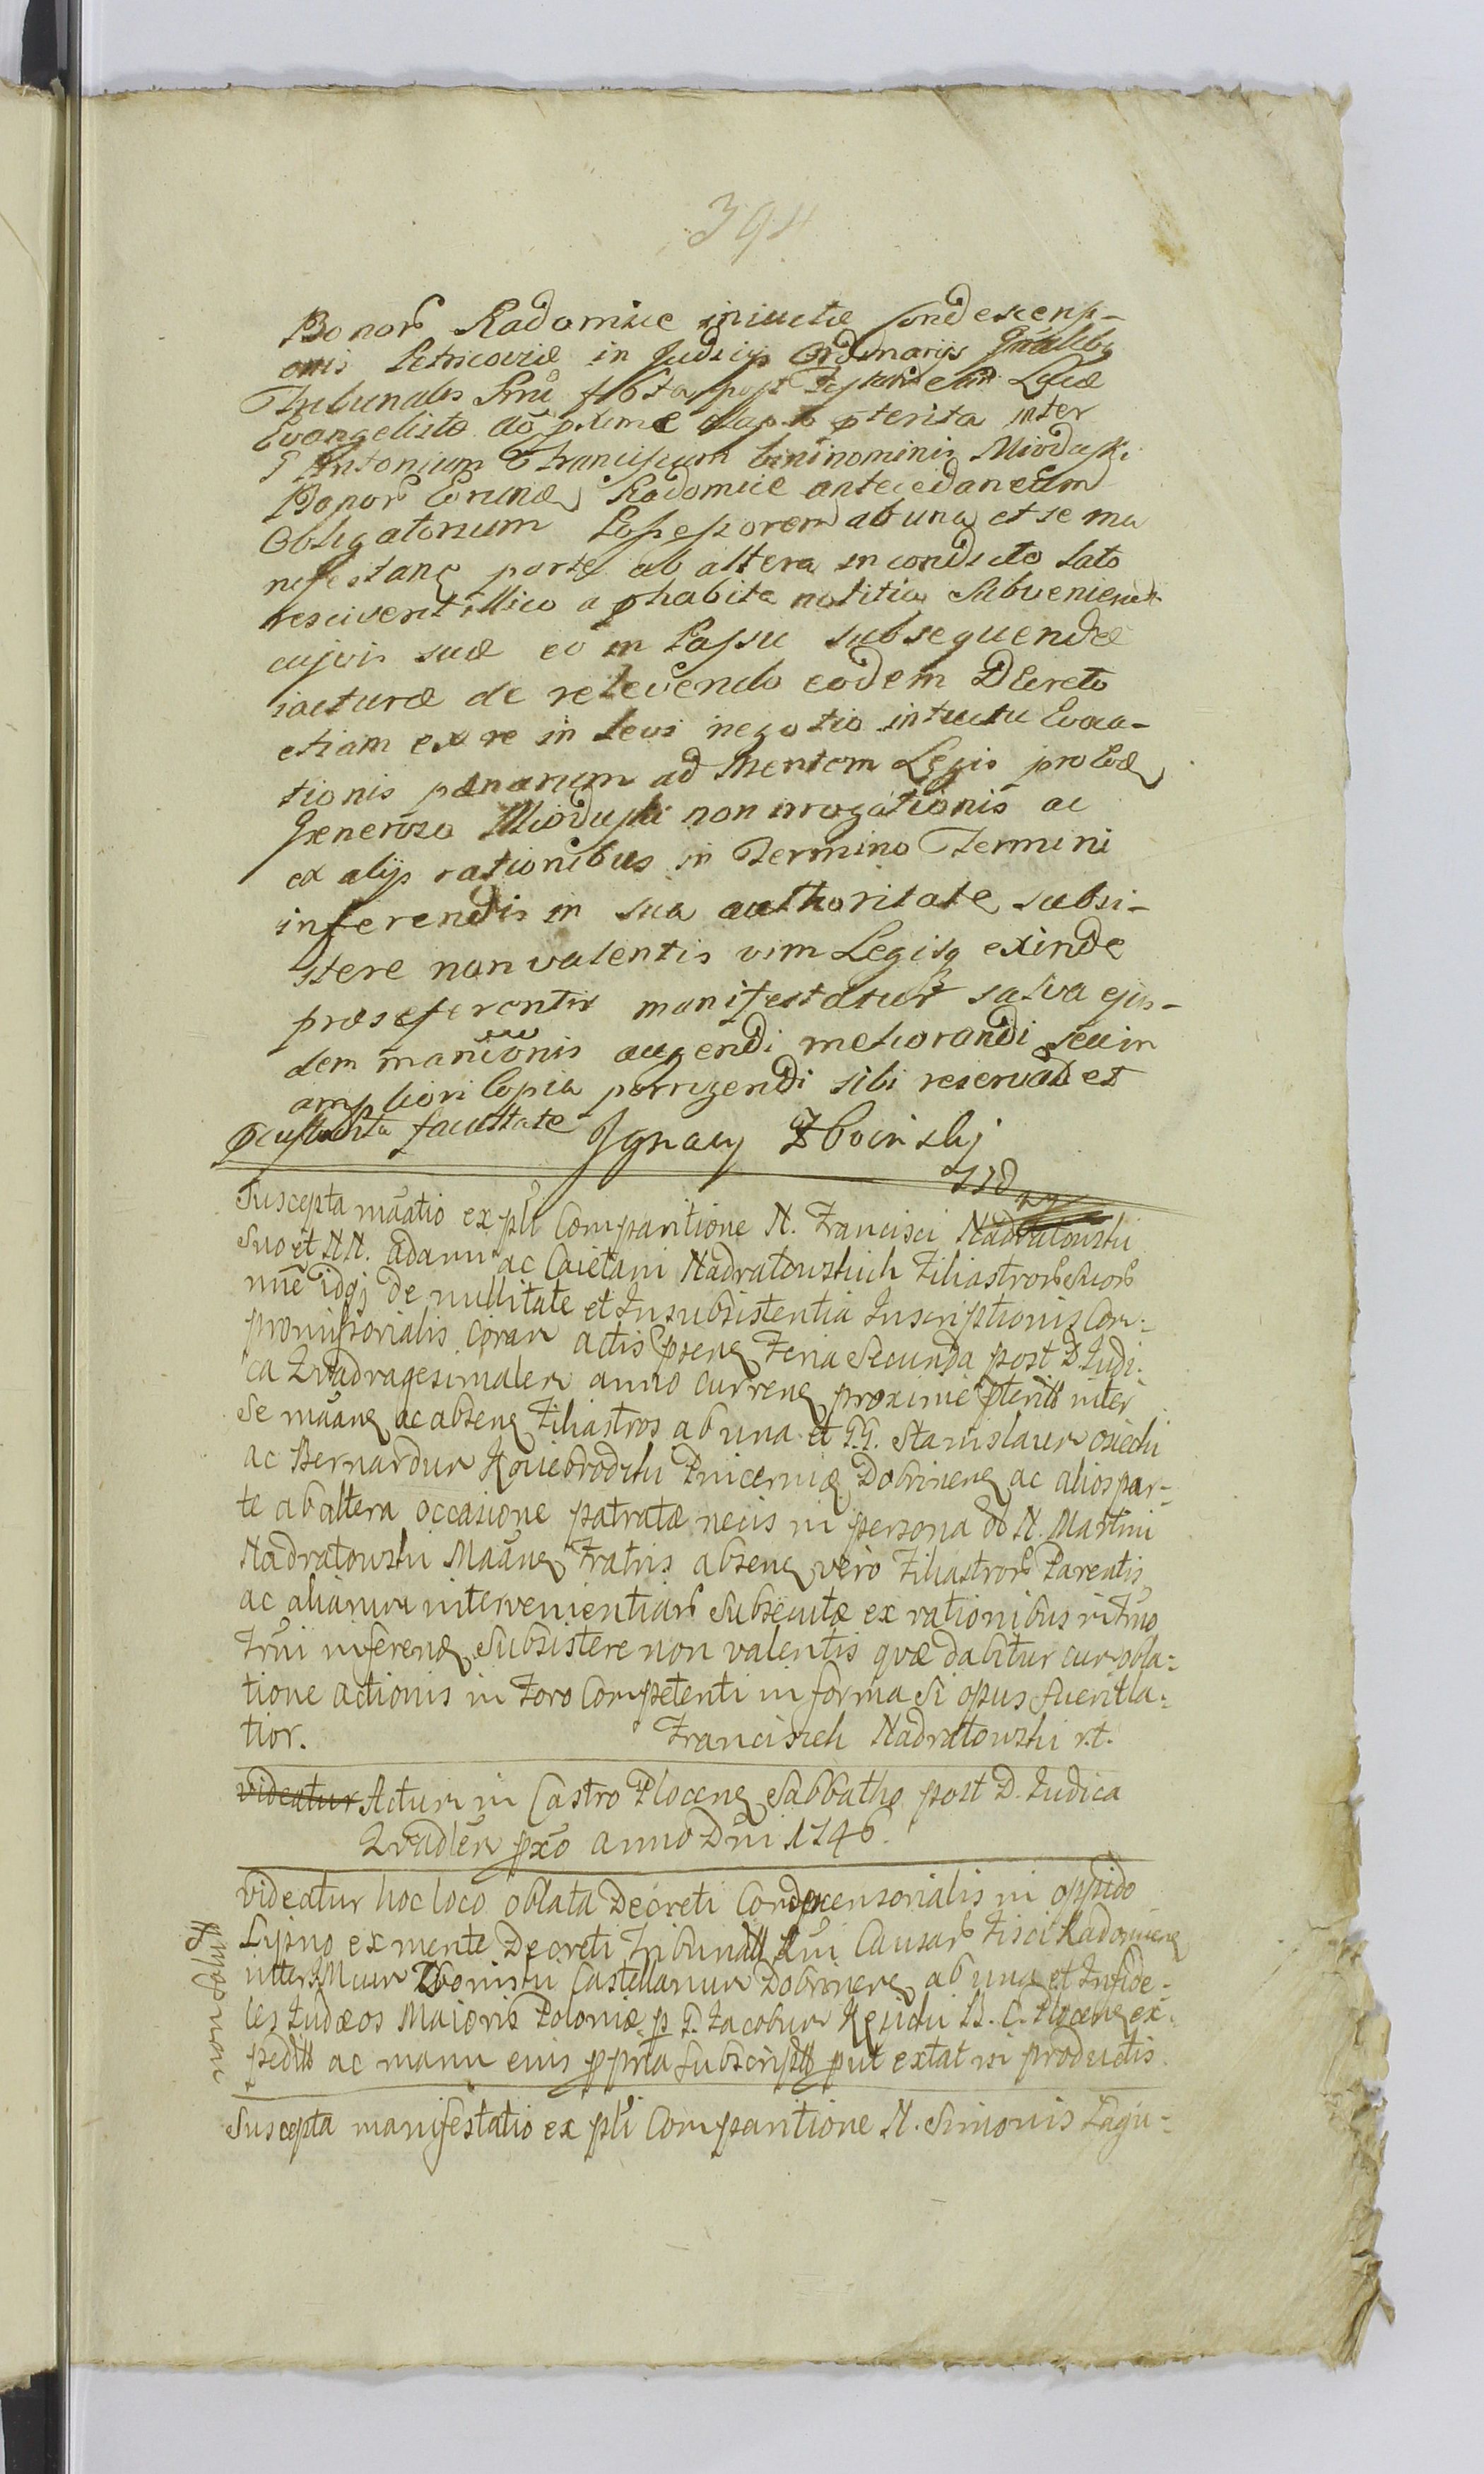 394
Bonor Radomice iniuctæ Condescensi-
onis Petricoviæ in Judicijs Ordinarijs Gnalibg
Tribunalis Rni f 6ta post Festum Sti Lucæ
Evangelistæ aõ pxime elapso pterita inter
G Antonium Franciscum binominis Mioduski
Bonor Eorund Radomice antecedaneum
Obligatorium Possessorem ab una et se ma
nifestang parte ab altera in condicto lato
resciverit illico a phabita notitia subveniendi
cujvis suæ eo in Passu subsequendæ
iacturæ de relevendo eodem Decreto
etiam ex re in levi negotio intuitu Evoca-
tionis pænarum ad Mentem Legis pro Eod
Generoso Mioduski non irrogationis ac
ex alijs rationibus in Termino Termini
inferendis in sua authoritate subsi-
stere non valentis vim Legisq exinde
præseferentis manifestatur salva ejus-
dem mancionis augendi meliorandi seu in
ampliori Copia porrigendi sibi reservat et
pcustodita facultate Ignacy Zboinskj
Suscepta mãatio ex pli Comparitione N. Francisci Nadratowski
Suo et NN. Adami ac Caietani Nadratowskich Filiastror Suor
nñe idq; de nullitate et Insubsistentia Inscriptionis Com-
promissorialis coram Actis pseng Feria Secunda post D. Judi-
ca Qvadragesimalem anno curreng proxime pterit inter
Se mãang ac abseng Filiastros ab una et G.G. Stanislaum osiecki
ac Bernardum Kowebrodzki Pincernæ Dobrineng ac alios par-
te ab altera occasione patratæ necis in persona od N. Martini
Nadratowski Mãang Fratris abseng vero Filiastror Parentis
ac aliarum intervenientiar Subsecutæ ex rationibus in Tmo
Trñi inferend Subsistere non valentis qvæ dabitur cum obla-
tione actionis in Foro Competenti in forma Si opus fuerit la-
tior. Franciszek Nadratowski r.t.
videatur Actum in Castro Ploceng Sabbatho post D. Judica
Qvadlem pxo anno Dni 1746.
videatur hoc loco oblata Decreti Condescensorialis in oppido
Lipno ex mente Decreti Tribunall Rni Causar Fisci Radomieng
inter Mcum Zboinski Castellanum Dobrineng ab una et Infide-
les Judæos Maioris Poloniæ p G. Jacobum Kijcki B. C. Ploceng ex-
pedit ac manu eius ppria Subscript put extat in productis.
Suscepta manifestatio ex pli Comparitione N. Simonis Lagu-